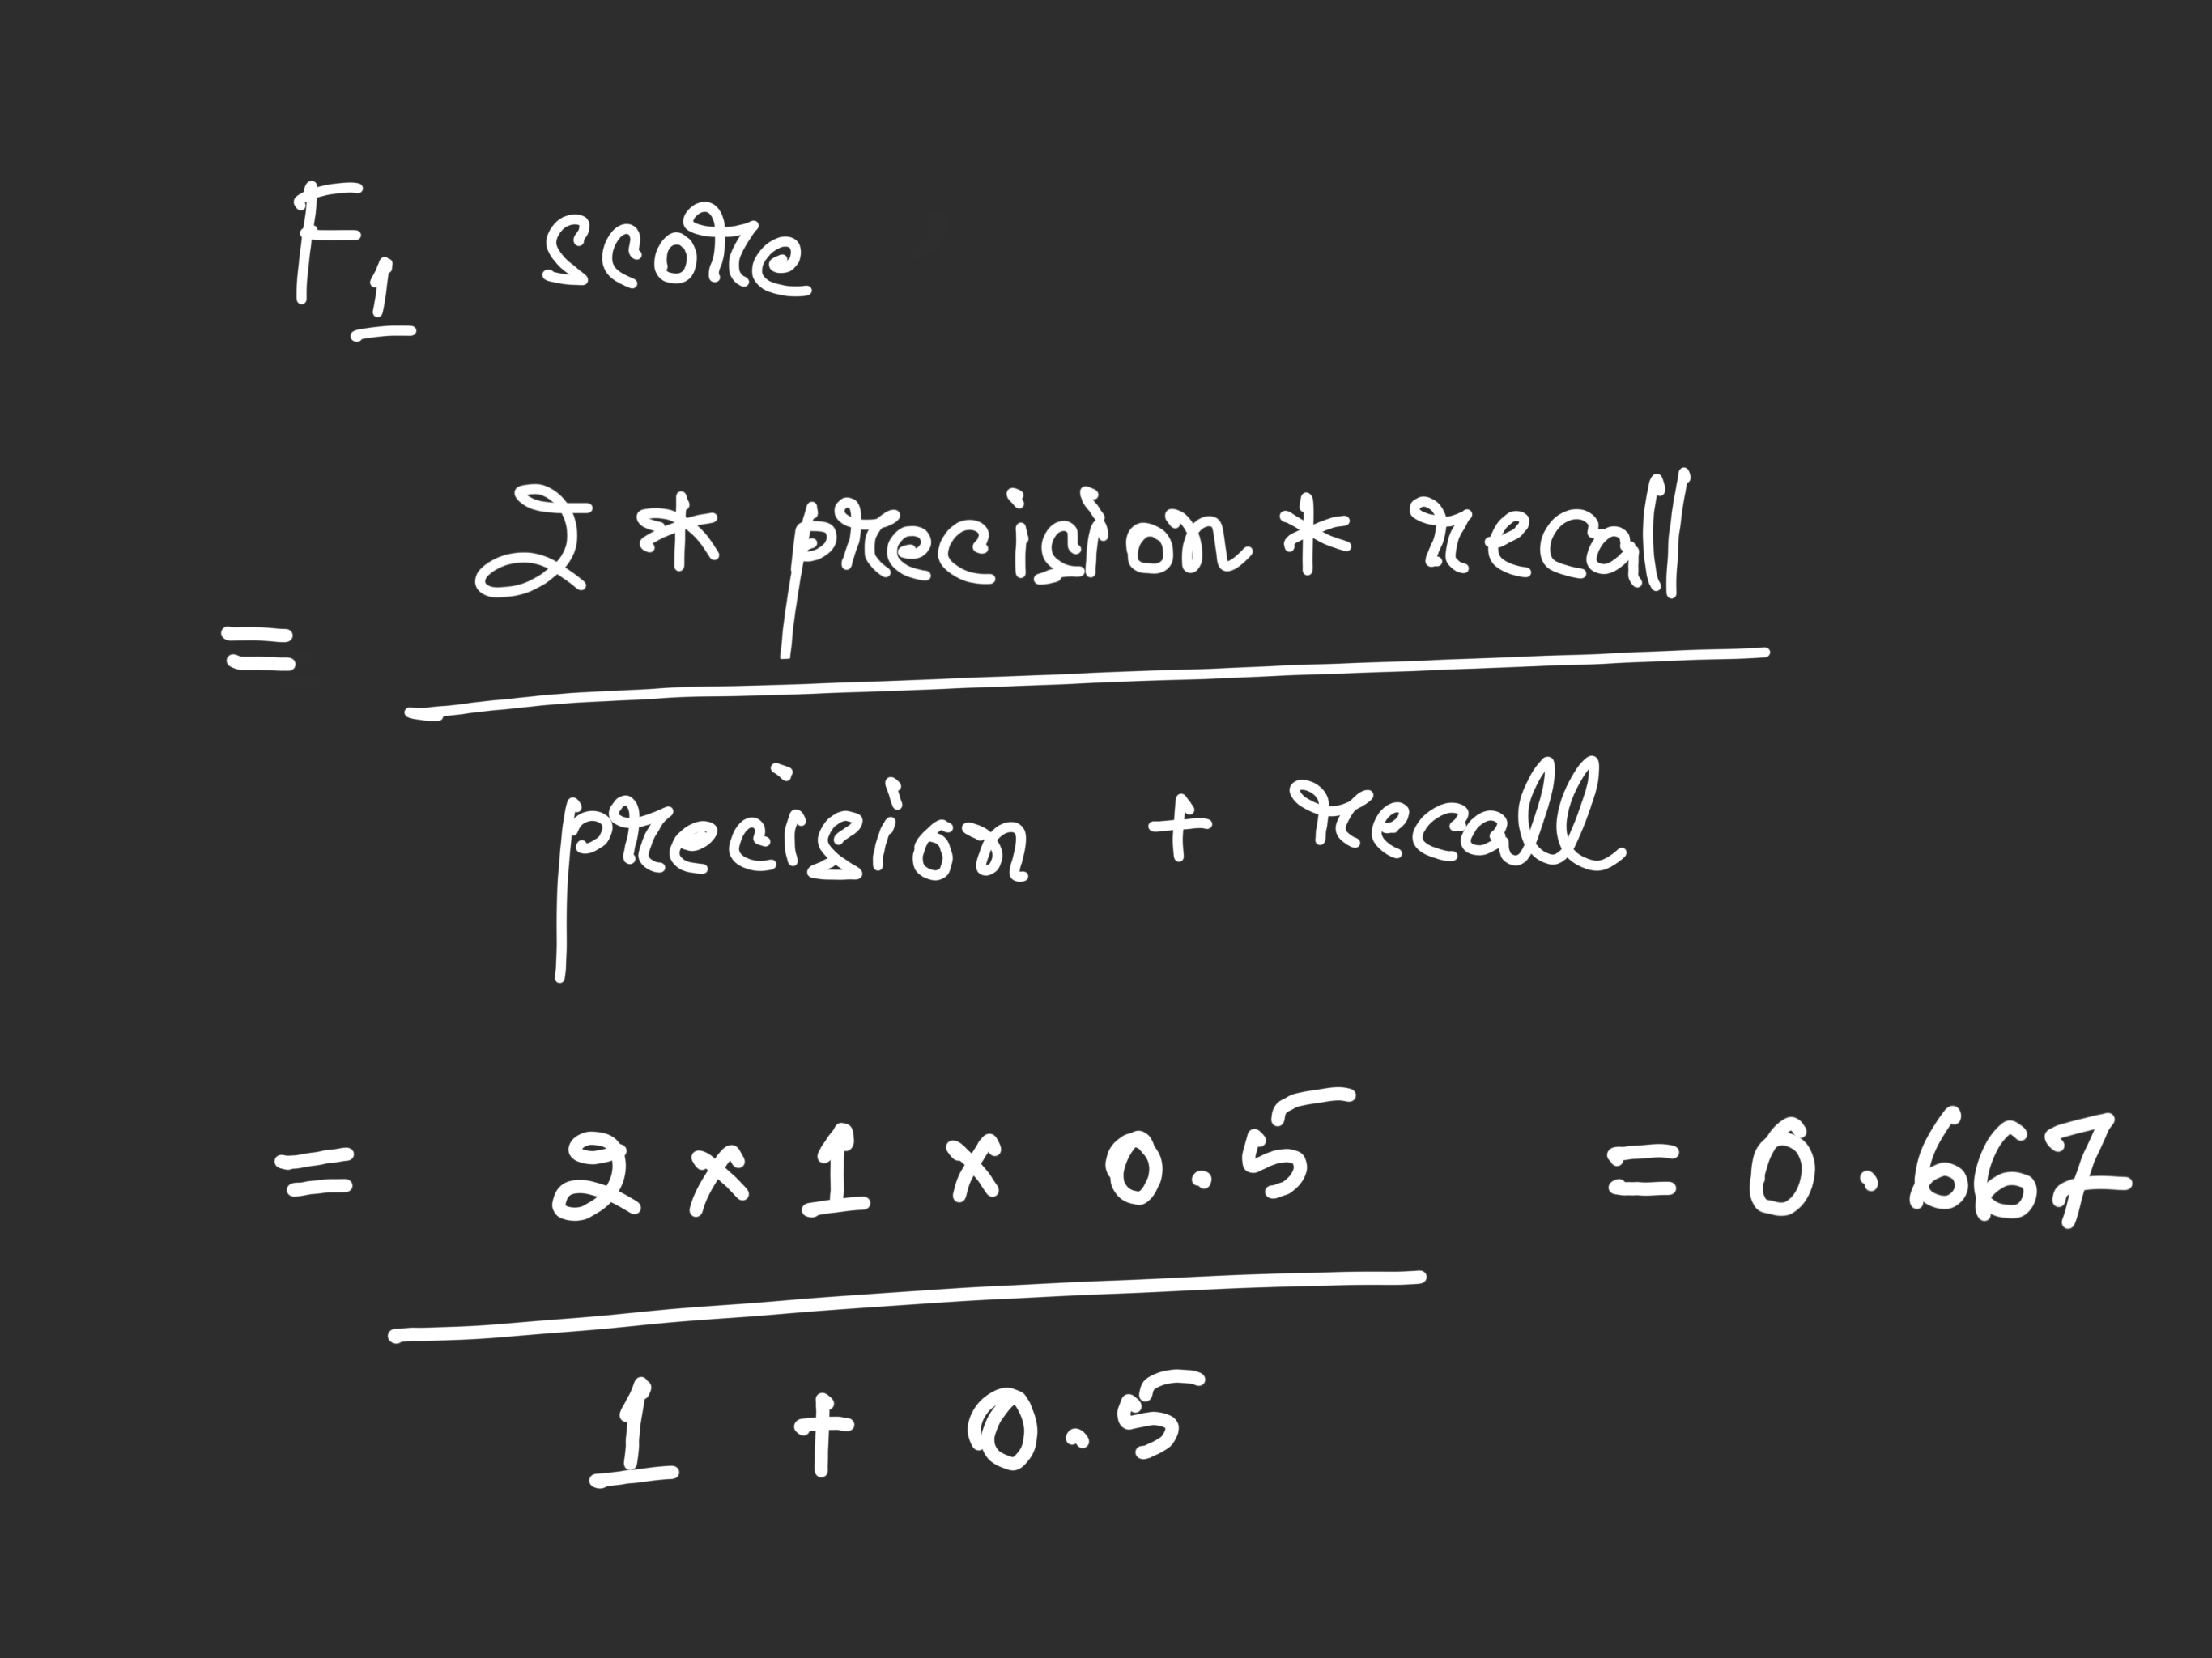 F1 score
2 * precision * recall
=
precision + recall
= 2 x 1 x 0.5 = 0.667
1 + 0.5